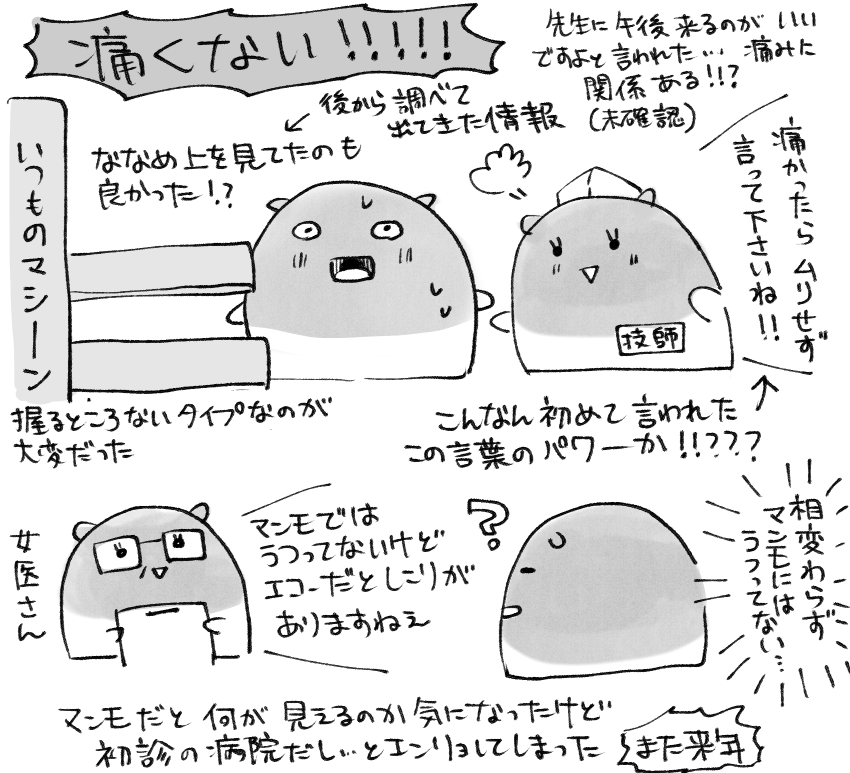 痛くない!!!!!
先生に午後来るのがいい
ですよと言われた…痛みに
関係ある!!?
(未確認)
後から調べて
出てきた情報
ななめ上を見てたのも
良かった!?
いつものマシーン
痛かったらムリせず
言って下さいね!!
技師
握るところないタイプなのが
大変だった
こんなん初めて言われた
この言葉のパワーか!!???
女医さん
マンモでは
うつってないけど
エコーだとしこりが
ありますねえ
?
相変わらず
マンモには
うつってない…
マンモだと何が見えるのか気になったけど
初診の病院だし…とエンリョしてしまった
また来年